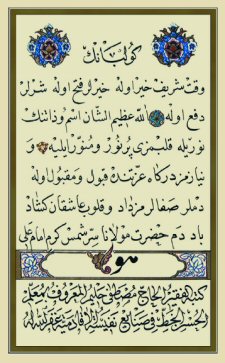 كولبانك
وقت شريف خير اوله خيرلر فتح اوله شرلر
دفع اوله الله عظيم الشان اسم ذاتنك
نوريله قلبمزى پرنور و منور ايليه و
نيازمز درگاه عزتنده قبول و مقبول اوله
دملر صفالر مزداد و قلوب عاشقان كشاد
باد دم حضرت مولانا سر شمس كرم امام على
هو
كتبه الفقير الحاج مصطفى حليم المعروف بمعلم
الحسن الخط فى صنايع نفيسه الاقاديمية غفر الله له